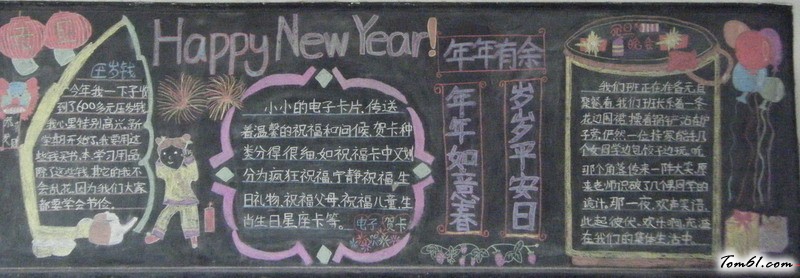 Happy New Year!
年年有余
岁岁平安日
年年如意春
压岁钱
今年我一下子收
到了600多元压岁钱
我心里特别高兴,新
学期开始了,我要用这
些钱买书,来学习用品
那
我不
会乱花,因为我们大家
都要学会节俭。
小小的电子卡片,传送
着温馨的祝福和问候,贺卡种
类分得很细,如祝福卡中又划
分为疯狂祝福,宁静祝福,生
日礼物,祝福父母,祝福儿童,生
肖生日星座卡等。
电子贺卡
我们班正在在多元
聚餐
花边围裙
那个角
一阵大笑,原
来老师识破了几个同学的
诡计,那一夜,欢声笑语
此起彼伏,欢乐
在我们的集体生活中
Tom61.com